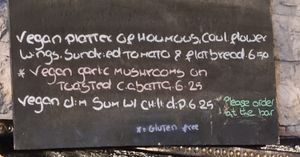 vegan platter of houmous, Cauliflower
Wings. Sundried tomato & flatbread. 6.50
* vegan garlic mushrooms on
toasted ciabatta. 6.25
vegan dim sum w/ chilli dip 6.25
Please order
at the bar
* = Gluten free